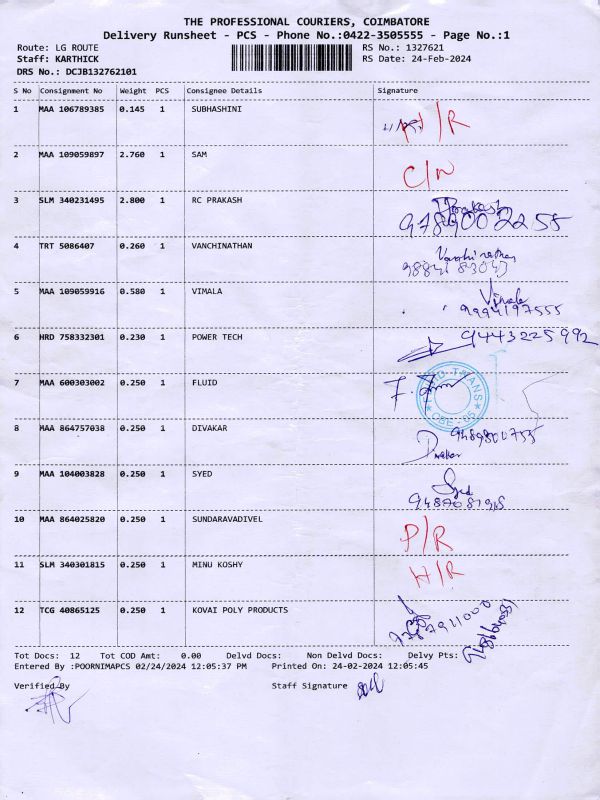 THE PROFESSIONAL COURIERS, COIMBATORE
Delivery Runsheet - PCS - Phone No.:0422-3505555 - Page No.:1
Route: LG ROUTE RS No.: 1327621
Staff: KARTHICK RS Date: 24-Feb-2024
DRS No.: DCJB132762101
S No Consignment No Weight PCS Consignee Details Signature
1 MAA 106789385 0.145 1 SUBHASHINI H/R
2 MAA 109059897 2.760 1 SAM C/N
3 SLM 340231495 2.800 1 RC PRAKASH Prakash
9789002255
4 TRT 5086407 0.260 1 VANCHINATHAN
5 MAA 109059916 0.580 1 VIMALA Vimala
9994197555
6 HRD 758332301 0.230 1 POWER TECH 9443225992
7 MAA 600303002 0.250 1 FLUID
8 MAA 864757038 0.250 1 DIVAKAR
Divakar
9 MAA 104003828 0.250 1 SYED Syed
10 MAA 864025820 0.250 1 SUNDARAVADIVEL P/R
11 SLM 340301815 0.250 1 MINU KOSHY H/R
12 TCG 40865125 0.250 1 KOVAI POLY PRODUCTS
Tot Docs: 12 Tot COD Amt: 0.00 Delvd Docs: Non Delvd Docs: Delvy Pts:
Entered By :POORNIMAPCS 02/24/2024 12:05:37 PM Printed On: 24-02-2024 12:05:45
Verified By Staff Signature